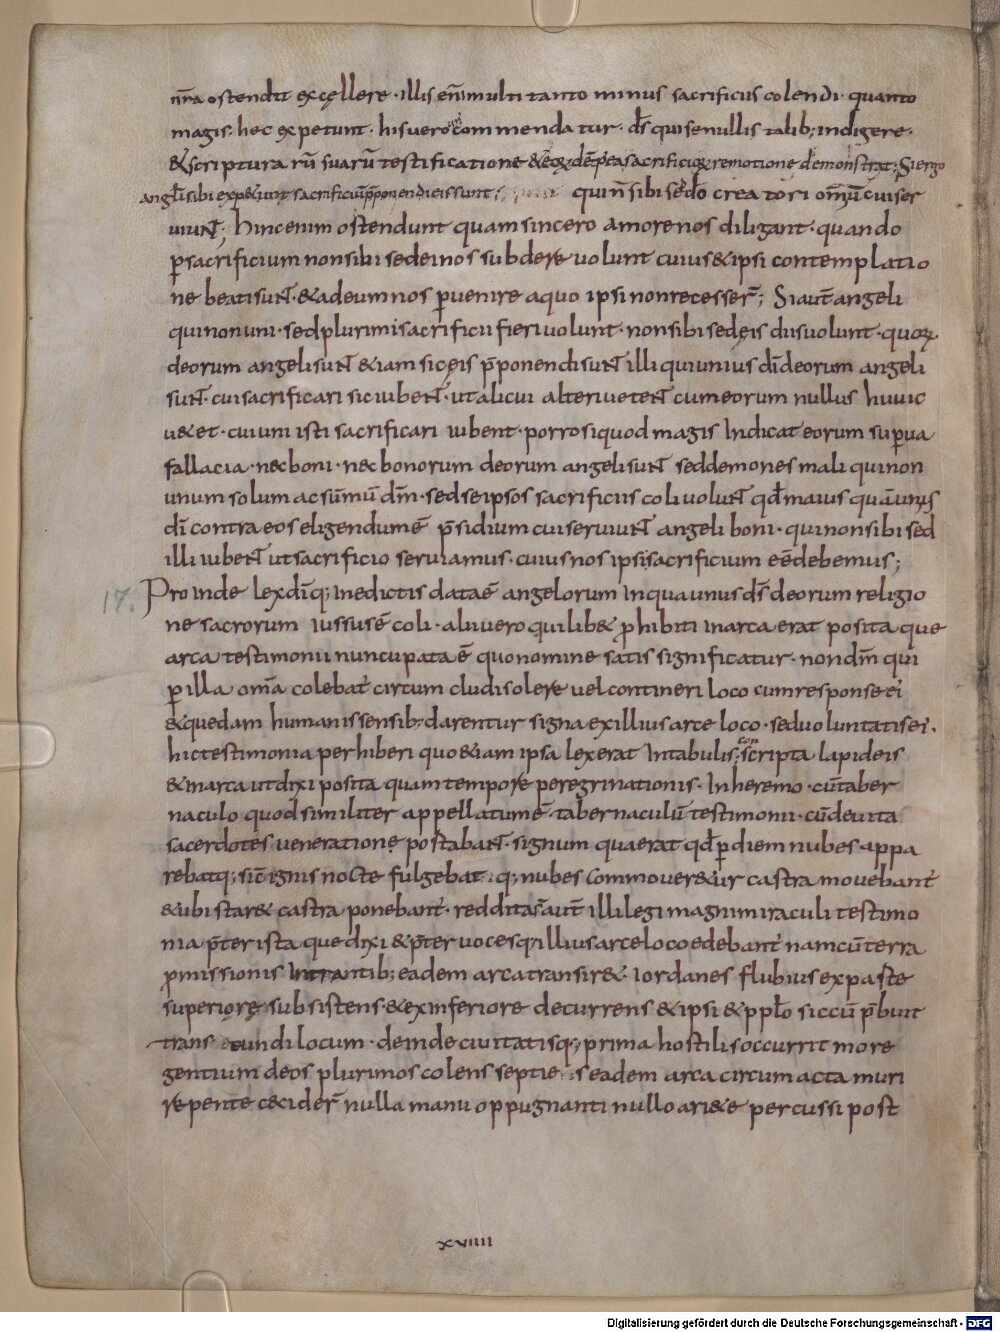 nr̄a ostendit excellere · illis enī multi tanto minus sacrificiis colendi · quanto
magis · hec expetunt · his uero commendatur · d̄s qui se nullis talib; indigere ·
& scriptura rū suarū testificatione & eoꝝ dēpea sacrificioꝝ remotione demonstrat; Si ergo
angl̄i sibi expe&unt sacrificiū p̄ponendi eis sunt; qui n̄ sibi sed dō creatori om̄iū cui ser
uiuNT; hinc enim ostendunt quam sincero amore nos diligant · quando
ꝑ sacrificium non sibi sed ei nos subdere uolunt cuius & ipsi contemplatio
ne beati suNT · & ad eum nos ꝑuenire a quo ipsi non recesser̄; Si aut̄ angeli
qui non uni · sed plurimi sacrificii fieri uolunt · non sibi sed ęis diis uolunt · quoꝝ
deorum angeli suNT &iam sic ęis p̄ponendi suNT illi qui unius dī deorum angeli
suNT · cui sacrificari sic iubeNT · ut alicui alteri ueteNT cum eorum nullus huuic
u&et · cui um isti sacrificari iubent · porro si quod magis Indicat eorum suꝑua
fallacia · nec boni · nec bonorum deorum angeli suNT sed demones mali qui non
unum solum ac sūmū dm̄ · sed se ipsos sacrificiis coli uoluNT qd̄ maius quā unius
dī contra eos eligendum ē p̄sidium cui seruiuNT angeli boni · qui non sibi sed
illi iubeNT ut sacrificio seruiamus · cuius nos ipsi sacrificium eē debemus;
17. Proinde lex dī q; in edictis data ē angelorum In qua unus d̄s deorum religio
ne sacrorum iussus ē coli · alii uero quilib& ꝓhibiti in arca erat posita que
arca testimonii nuncupata ē quo nomine satis significatur · non dm̄ qui
ꝑ illa om̄a colebat̄ circum cludi solere uel contineri loco cum response ei
& quedam humanis sensib; darentur signa ex illius arce loco · sed uoluntatis ei ·
hic testimonia perhiberi quo &iam ipsa lex erat In tabulis; conscripta lapideis
& in arca ut dixi posita quam tempore peregrinationis · In heremo · cū taber
naculo quod similiter appellatum ē · tabernaculū testimonii · cū deuita
sacerdotes ueneratione postabaNT · signum qua erat qd̄ ꝑ diem nubes appa
rebat q; sic̄ ignis nocte fulgebat · q; nubes Commouer&ur castra mouebant
& ubi star& castra ponebant · reddita sr̄ aut̄ illi legi magni miraculi testimo
nia p̄ter ista que dixi & p̄ter uoces q; illius arce loco edebant̄ nam cū terra
ꝓmissionis Intrantib; eadem arca transir& · Iordanes flubius ex paste
superiore subsistens · & ex inferiore decurrens & ipsi & ppl̄o siccū p̄buit
trans eundi locum · deinde ciuitatis q; prima hostilis occurrit more
gentium deos plurimos colens septies eadem arca circum acta muri
repente cecider̄ nulla manu oppugnanti nullo ari&e percussi post
xviiii
Digitalisierung gefördert durch die Deutsche Forschungsgemeinschaft - DFG